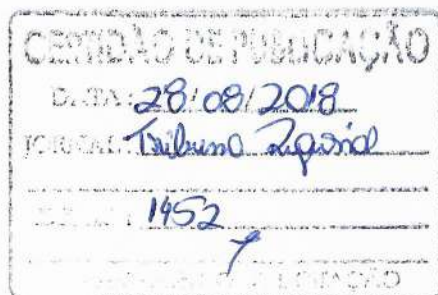 CERTIDÃO DE PUBLICAÇÃO
DATA: 28/08/2018
JORNAL: Tribuna Regional
1452
LICITAÇÃO